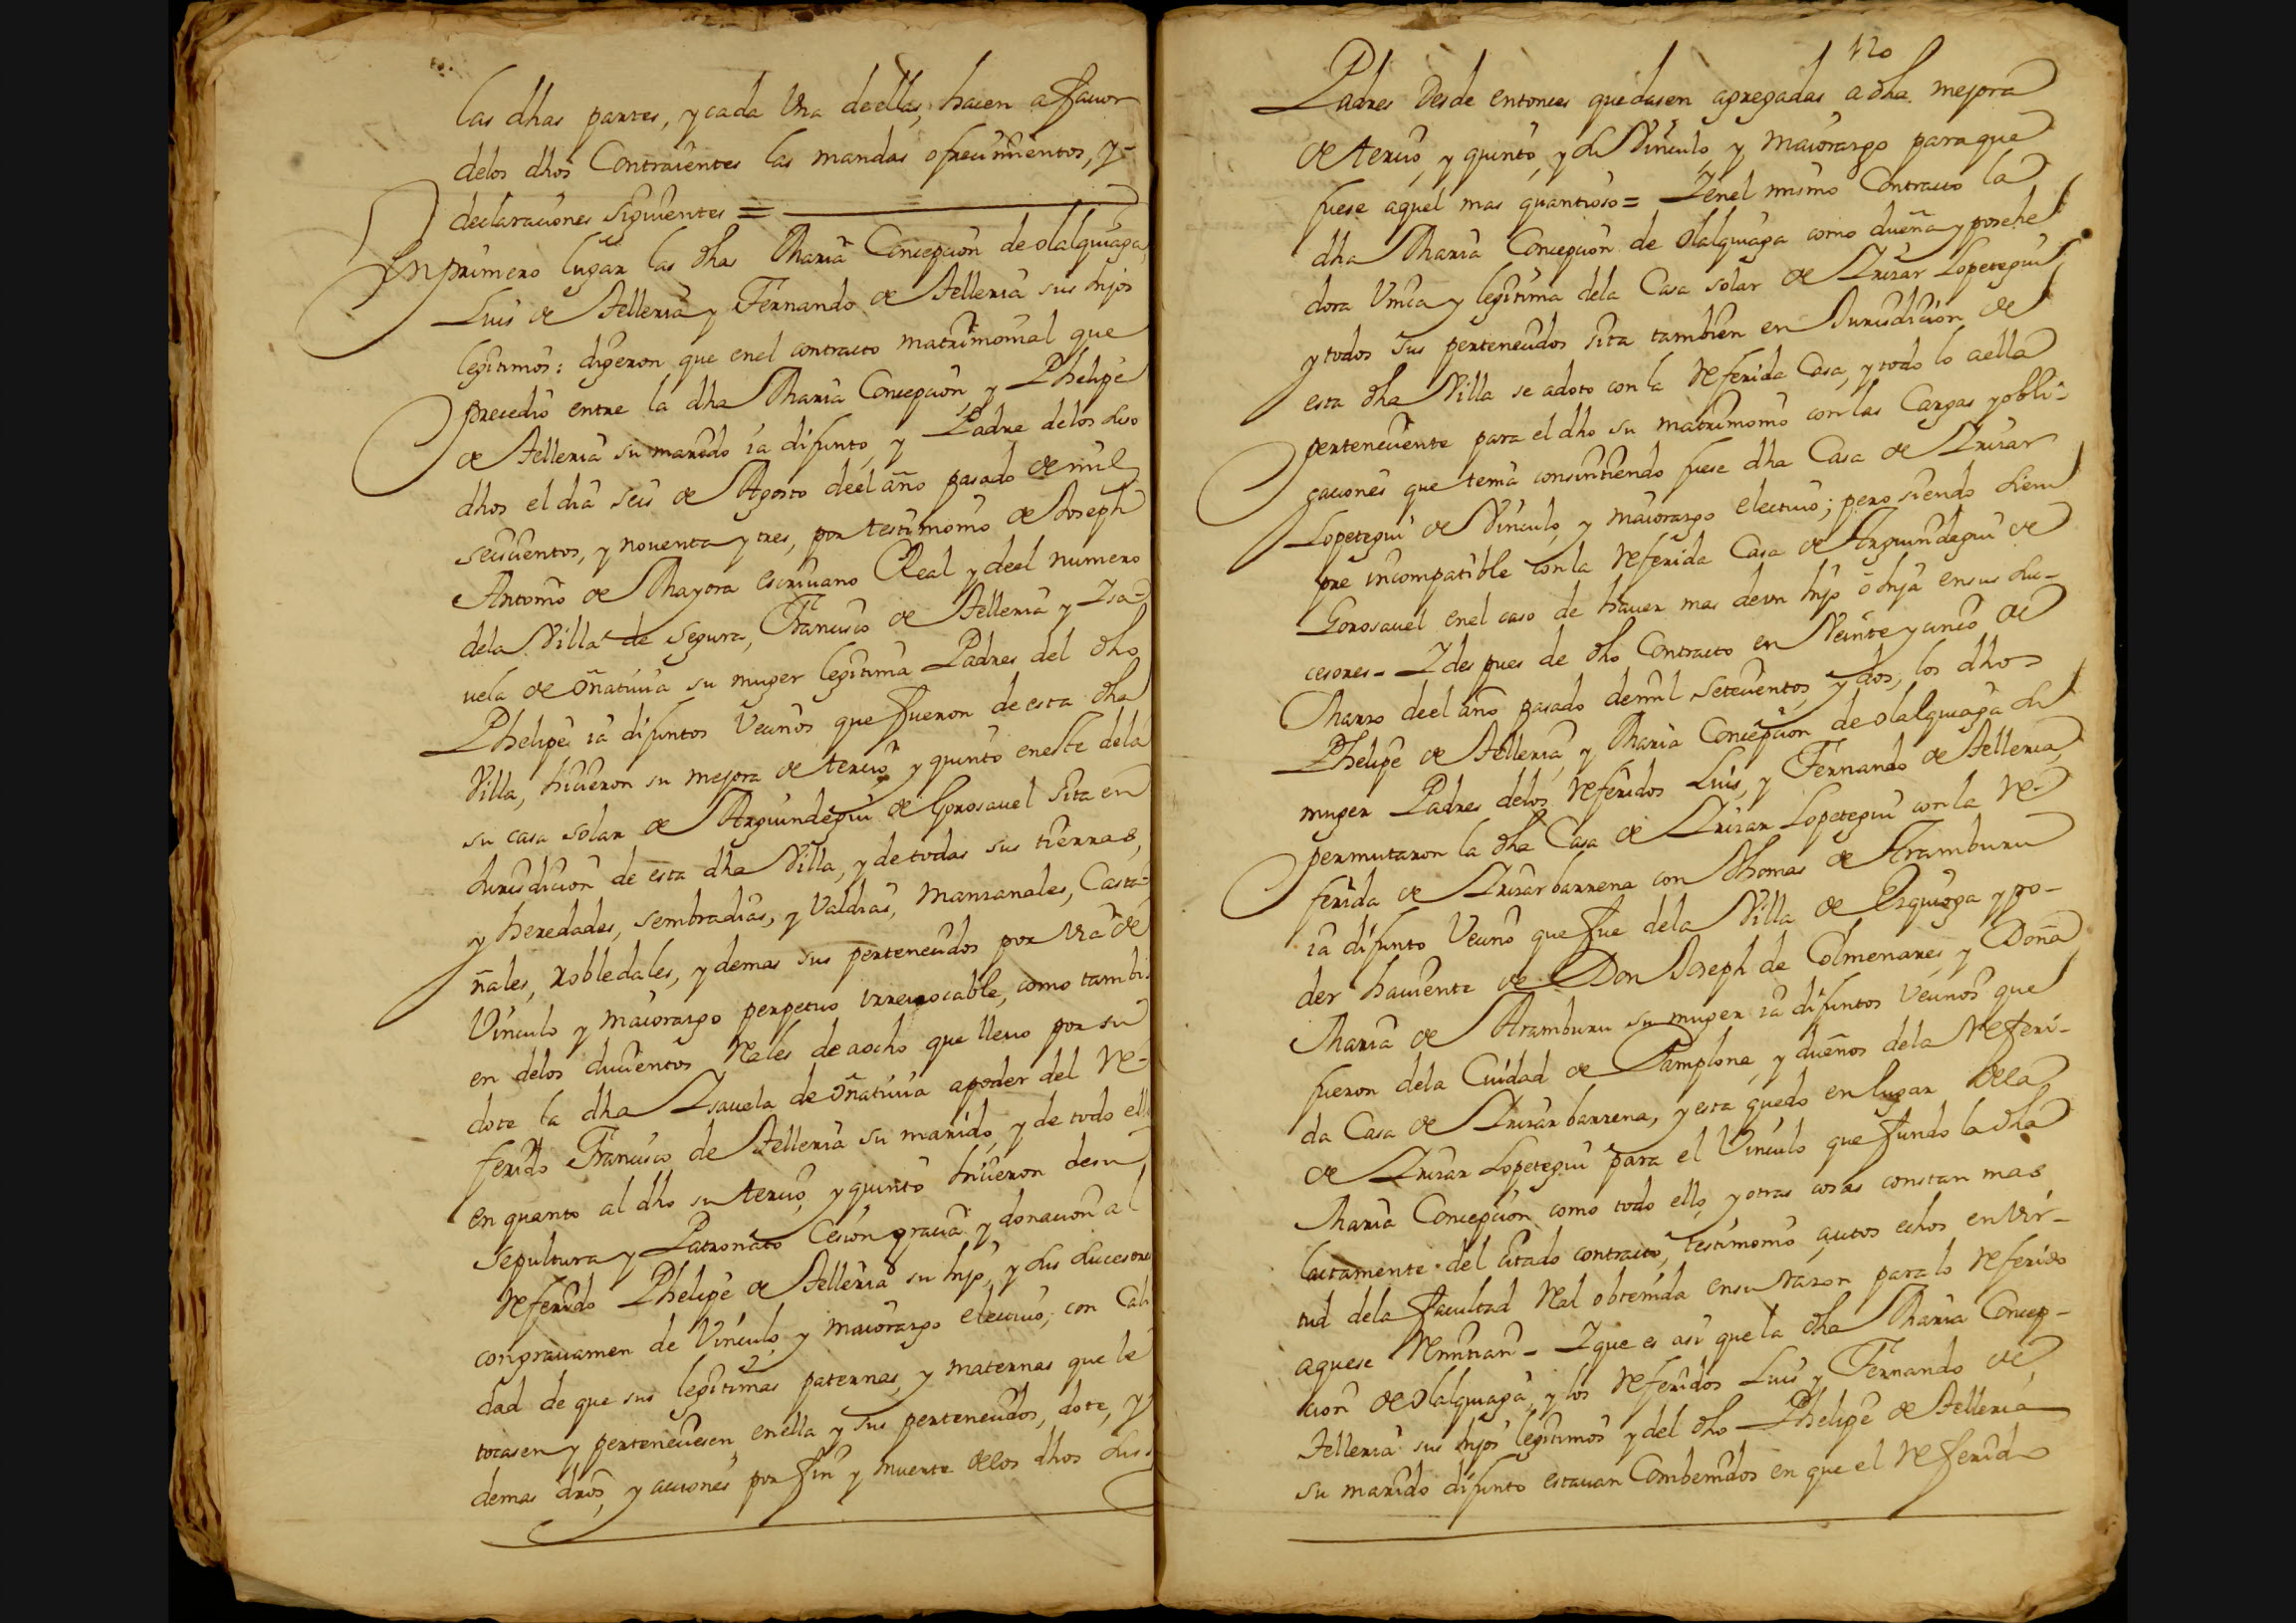 las dhas partes, y cada Una deellas, hacen a fauor
delos dhos Contraientes las mandas ofrecimientos, y-
declaraciones siguientes =
En primero lugar las dhas Maria Concepcion de olalquiaga,
Luis de Telleria y Fernando de Telleria sus hijos
legitimos: digeron que enel contracto matrimonial que
precedio entre la dha Maria Concepcion, y Phelipe
de Telleria su marido ia difunto, y Padre delos suso
dhos el dia seis de Agosto deel año pasado de mil
seiscientos, y nouenta y tres, por testimonio de Joseph
Antonio de Mayora escriuano Real y deel numero
dela Villa de Segura, Francisco de Telleria y Isa-
uela de oñatiuia su muger legitima Padres del dho
Phelipe ia difuntos Vecinos que fueron de esta dha
Villa, hicieron su mejora de tercio, y quinto eneste dela
su casa solar de Arguindegui de Gorosauel sita en
Jurisdicion de esta dha Villa, y de todas sus tierras,
y heredades, sembradias, y Valdias, Manzanales, Casta-
ñales, Robledales, y demas sus pertenecidos por via de
Vinculo y maiorazgo perpetuo irreuocable, como tambi
en delos ducientos Reales de aocho que lleuo por su
dote la dha Isauela de oñatiuia apoder del Re-
ferido Francisco de Telleria su marido, y de todo ello
en quanto al dho su tercio, y quinto hicieron de su
sepultura y Patronato Cesion gracia y donacion al
Referido Phelipe de Telleria su hijo, y sus sucesores
congrauamen de Vinculo, y maiorazgo electiuo; con Cali
dad de que sus legitimas paternas, y maternas que le
tocasen y perteneciesen, enella y sus pertenecidos, dote, y
demas dros, y acciones por fin y muerte delos dhos sus
120
Padres Desde entonces quedasen agregadas a dha mejora
de tercio, y quinto, y su Vinculo, y maiorazgo paraque
fuese aquel mas quantioso = Y enel mismo Contracto la
dha Maria Concepcion de olalquiaga como dueña y posehe
dora Unica y legitima dela Casa solar de Lrizar Lopetegui
y todos sus pertenecidos sita tambien en Jurisdicion de
esta dha Villa se adoto con la Referida Casa, y todo lo aella
perteneciente para el dho su matrimonio con las Cargas y obli-
gaciones que tenia consintiendo fuese dha Casa de Lrizar
Lopetegui de Vinculo, y maiorazgo electiuo; pero siendo siem
pre incompatible con la Referida Casa de Arguindegui de
Gorosauel enel caso de hauer mas deun hijo ó hija ensus su-
cesores - Y despues de dho Contracto en Veinte y cinco de
Marzo deel año pasado demil setecientos, y dos, los dhos
Phelipe de Telleria, y Maria Concepcion de olalquiaga su
muger Padres delos Referidos Luis, y Fernando de Telleria,
permutaron la dha Casa de Lrizar Lopetegui con la Re-
ferida de Lrizarbarrena con Thomas de Aramburu
ia difunto Vecino que fue dela Villa de Ezquioga y po-
der hauiente de Don Joseph de Colmenares, y Doña
Maria de Aramburu su muger ia difuntos Vecinos que
fueron dela Ciudad de Pamplona, y dueños dela Referi-
da Casa de Lrizarbarrena, y esta quedo en lugar dela
de Lrizar Lopetegui para el Vinculo que fundo la dha
Maria Concepcion como todo ello, y otras cosas constan mas
laitamente del citado contracto, testimonio, autos echos en Vir-
tud dela facultad Real obtenida ensu razon para lo Referido
aquese Remitian - Y que es asi que la dha Maria Concep-
cion de olalquiaga, y los Referidos Luis y Fernando de
Telleria sus hijos legitimos y del dho Phelipe de Telleria
su marido difunto estauan Combenidos en que el Referido